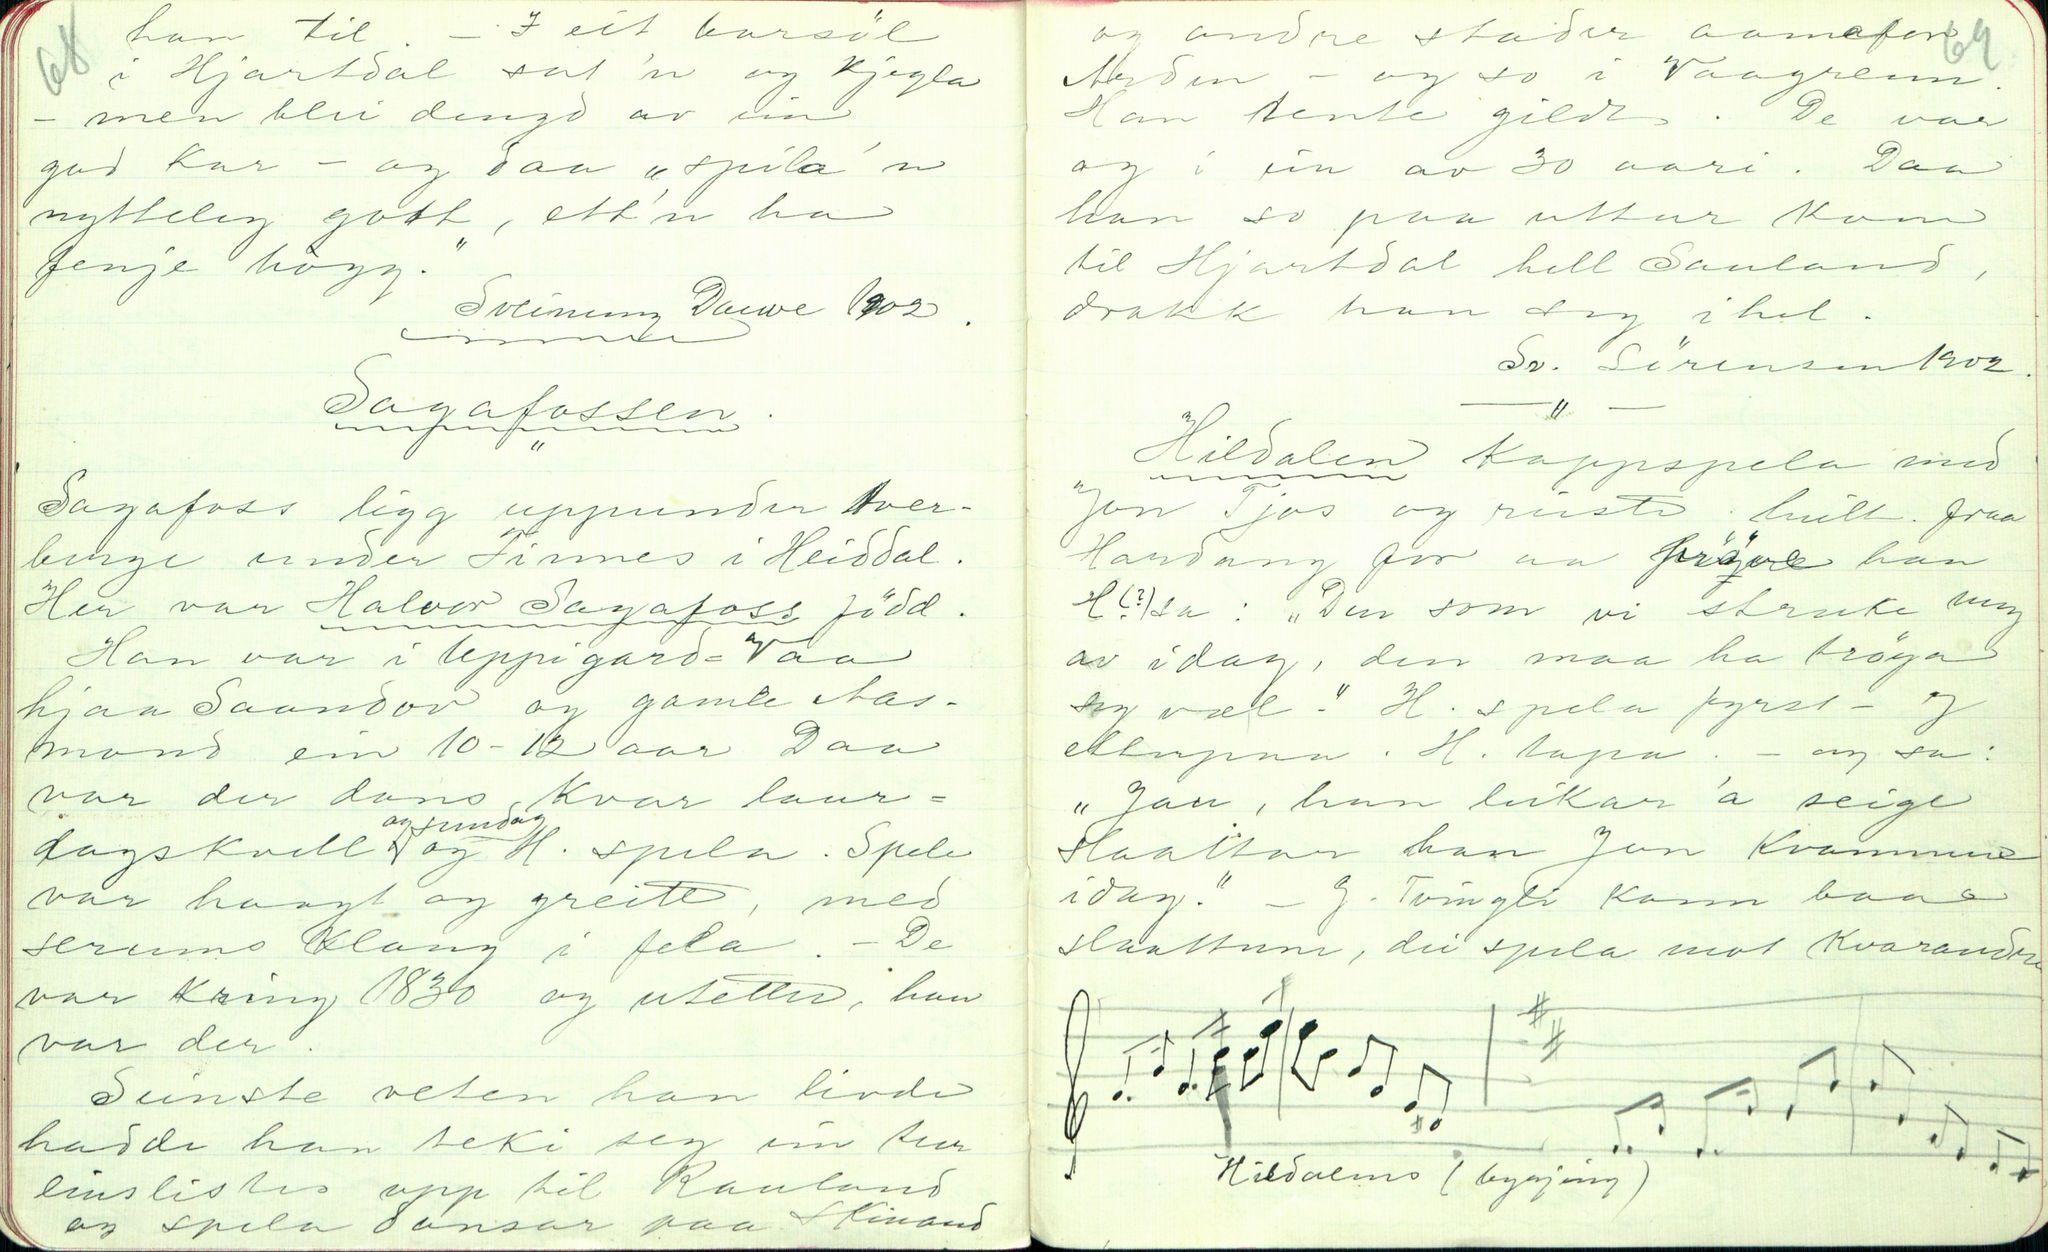 68
han til. – I eit barsöl
i Hjartdal sat'n og kjegla
– men blei dengd av ein
god kar – og daa „spila'n
nytteleg gott, ett'n ha
fenje högg."
Sveinung Dauve 1902.
Sagafossen.
"
Sagafoss ligg uppunder Aver-
berge under Tinnes i Heiddal.
Her var Halvor Sagafoss född.
Han var i Uppigard-Vaa
hjaa Saandor og gamle Aas-
mond ein 10-12 aar Daa
var der dans kvar laur-
dagskvell og sundag og H. spela. Spele
var haagt og greitt, med
serums klang i fela. – De
var kring 1830 og utetter, han
var der.
Seinste veten han livde
hadde han teki seg ein tur
einslistes upp til Rauland
og spela dansar paa Skinand
69
og andre stader aamefor
Aerden – og so i Vaagreinn.
Han tente gildt. De var
og i ein av 30 aari. Daa
han so paa uttur kom
til Hjartdal hell Sauland,
drakk han seg ihel.
Sv. Sörensen 1902.
— " —
Hildalen kappspela med
Jon Tjos og reiste heilt fraa
Hardang for aa pröve han
H(?) sa: „Den som vi struke meg
av idag, den maa ha tröga
seg væl." H. spela fyrst – J
etterpaa. H. tapa. – og sa:
„Jau, han leikar 'a seige
slaattar han Jon Kvammen
idag." – G. Tvingli kann baae
slaattune, dei spela mot kvarandre
Hildalens (bygjing)